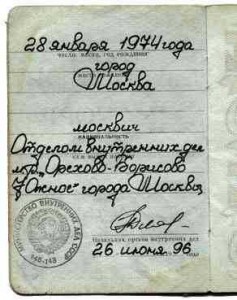 28 января 1974 года
число, месяц, год рождения
город
Москва
москвич
национальность
Отделом внутренних дел
мтр. „Орехово-Борисово
Южное" города Москва
МИНИСТЕРСТВО ВНУТРЕННИХ ДЕЛ СССР
Начальник органа внутренних дел
26 июня 96 года